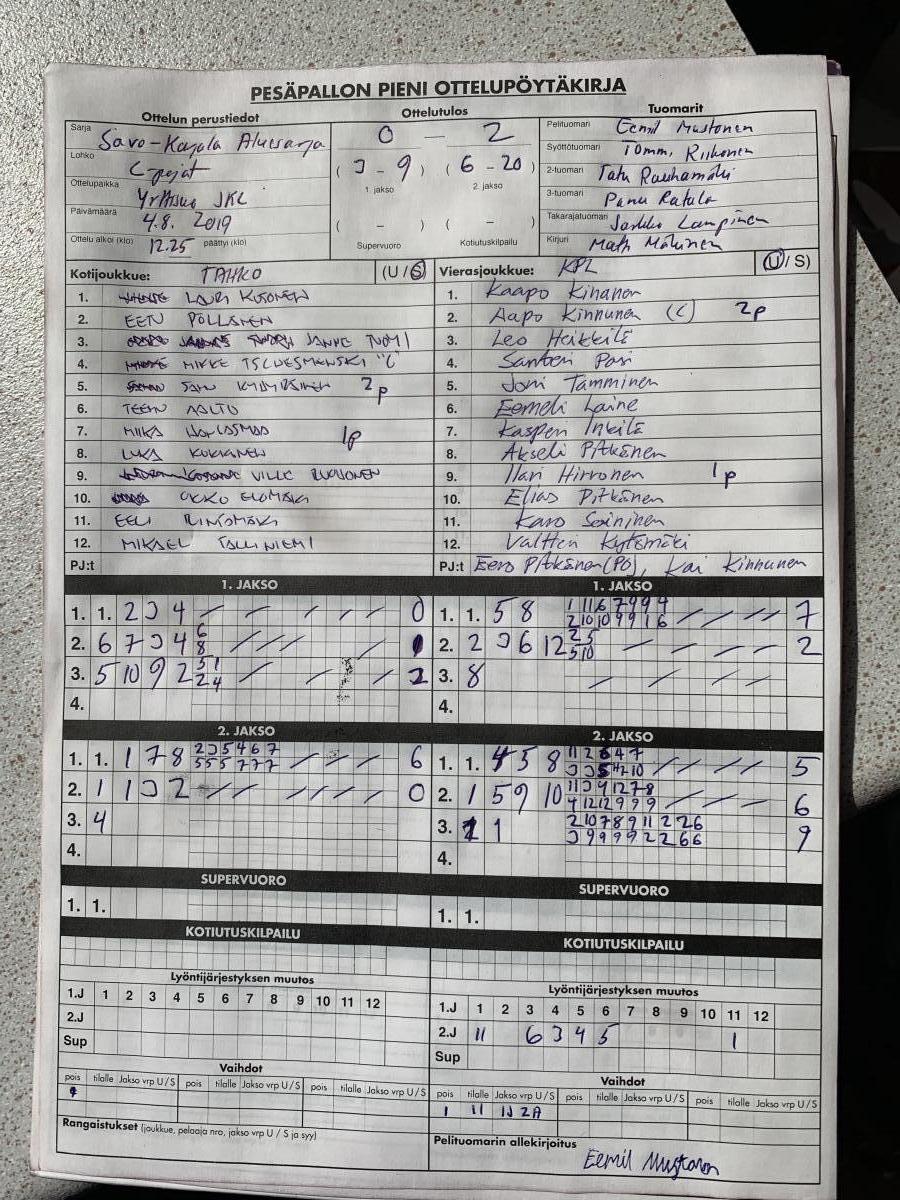 PESÄPALLON PIENI OTTELUPÖYTÄKIRJA
Ottelun perustiedot
Ottelutulos
Tuomarit
Sarja Savo-Karjala Aluesarja
Lohko C-pojat
Ottelupaikka JKL
Päivämäärä 4.8. 2019
Ottelu alkoi (klo) 12.25 päättyi (klo)
0 - 2
(3 - 9) (6 - 20)
1. jakso 2. jakso
( - ) ( - )
Supervuoro Kotiutuskilpailu
Pelituomari Eemil Mustonen
Syöttötuomari Tommi Riikonen
2-tuomari Tatu Rauhamäki
3-tuomari Panu Ratula
Takarajatuomari Jarkko Lampinen
Kirjuri Matti Mökinen
Kotijoukkue: TAHKO (U / S)
1. LAURI KOSONEN
2. EETU PÖLLÄNEN
3. JANNE TUOMI
4. MIKKE "C"
5. 2p
6. TEEMU AALTO
7. MIIKA 1p
8. LUKA KUKKANEN
9. VILLE RUOHONEN
10. OKKO ELOMÄKI
11. EELI RINTAMÄKI
12. MIKAEL TALLINIEMI
PJ:t
Vierasjoukkue: KPL (U / S)
1. Kaapo Kinanen
2. Aapo Kinnunen (C) 2p
3. Leo Heikkilä
4. Santeri Pasi
5. Joni Tamminen
6. Eemeli Laine
7. Kasperi Inkilä
8. Akseli Pitkänen
9. Ilari Hirvonen 1p
10. Elias Pitkänen
11. Karo Soininen
12. Valtteri Kytömäki
PJ:t Eero Pitkänen (PO), Kai Kinnunen
1. JAKSO
1. 1. 2 3 4 0
2. 6 7 3 4 6 8
3. 5 10 9 2 2
4.
1. JAKSO
1. 1. 5 8 7
2. 2 3 6 12 2 5 5 10 2
3. 8
4.
2. JAKSO
1. 1. 1 7 8 2 3 5 4 6 7 5 5 5 7 7 7 6
2. 1 1 3 2 0
3. 4
4.
2. JAKSO
1. 1. 5 8 5
2. 1 5 9 10 6
3. 1 2 10 7 8 9 11 2 2 6 3 9 9 9 9 2 2 6 6 9
4.
SUPERVUORO
1. 1.
SUPERVUORO
1. 1.
KOTIUTUSKILPAILU
KOTIUTUSKILPAILU
Lyöntijärjestyksen muutos
1.J 1 2 3 4 5 6 7 8 9 10 11 12
2.J
Sup
Lyöntijärjestyksen muutos
1.J 1 2 3 4 5 6 7 8 9 10 11 12
2.J 11 6 3 4 5 1
Sup
Vaihdot
pois tilalle Jakso vrp U / S pois tilalle Jakso vrp U / S pois tilalle Jakso vrp U / S
Vaihdot
pois tilalle Jakso vrp U / S pois tilalle Jakso vrp U / S pois tilalle Jakso vrp U / S
1 11 1J 2A
Rangaistukset (joukkue, pelaaja nro, jakso vrp U / S ja syy)
Pelituomarin allekirjoitus
Eemil Mustonen